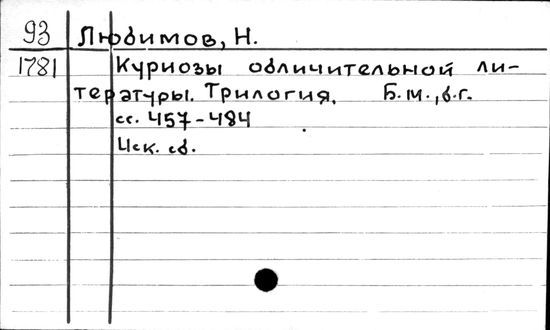 93 Любимов, Н.
1781 Куриозы обличительной ли-
тературы. Трилогия. Б.м., б.г.
сс. 457-484
Иск. сб.